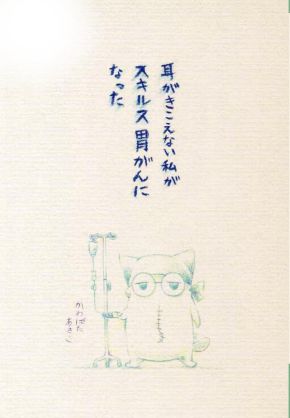 耳がきこえない私が
スキルス胃がんに
なった
かわばた
あきこ